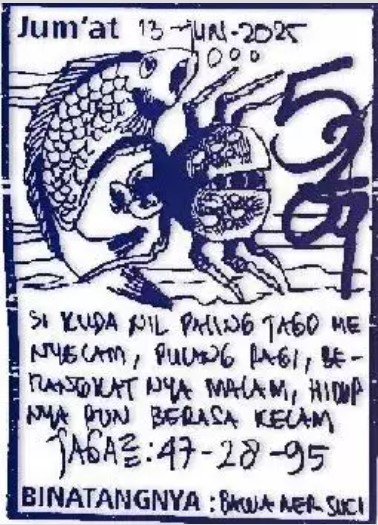 Jum'at 13-JUNI-2025
SI KUDA NIL PALING JAGO ME
NYELAM, PULANG PAGI, BE-
RANGKAT NYA MALAM, HIDUP
NYA PUN BERASA KELAM
JAGA²: 47-28-95
BINATANGNYA : BAWA AER SUCI